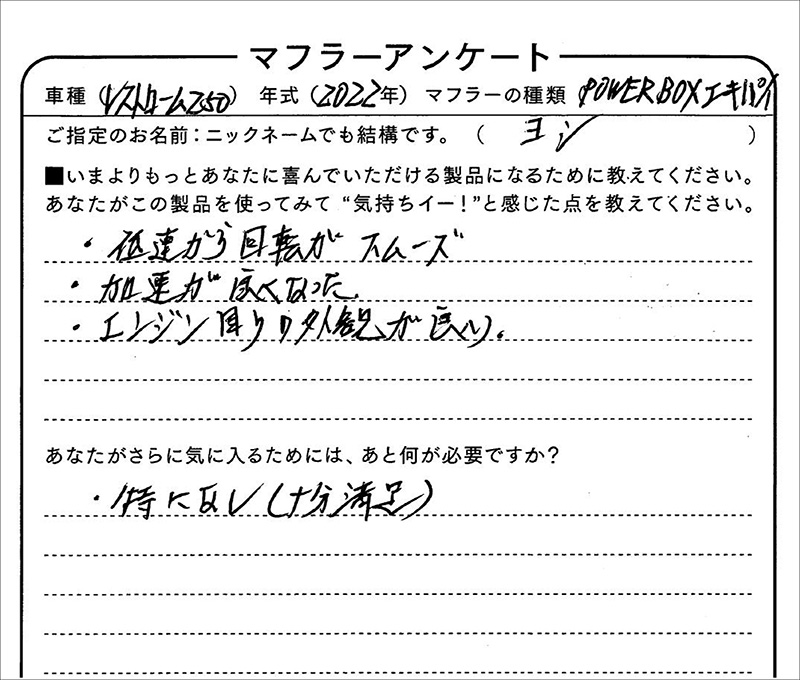 マフラーアンケート
車種（Vストローム250） 年式（2022年） マフラーの種類（POWERBOXエキパイ
ご指定のお名前：ニックネームでも結構です。（ ヨシ ）
■いまよりもっとあなたに喜んでいただける製品になるために教えてください。
あなたがこの製品を使ってみて “気持ちイー！”と感じた点を教えてください。
・低速から回転がスムーズ
・加速が良くなった。
・エンジン周りの外観が良い。
あなたがさらに気に入るためには、あと何が必要ですか？
・特になし（十分満足）